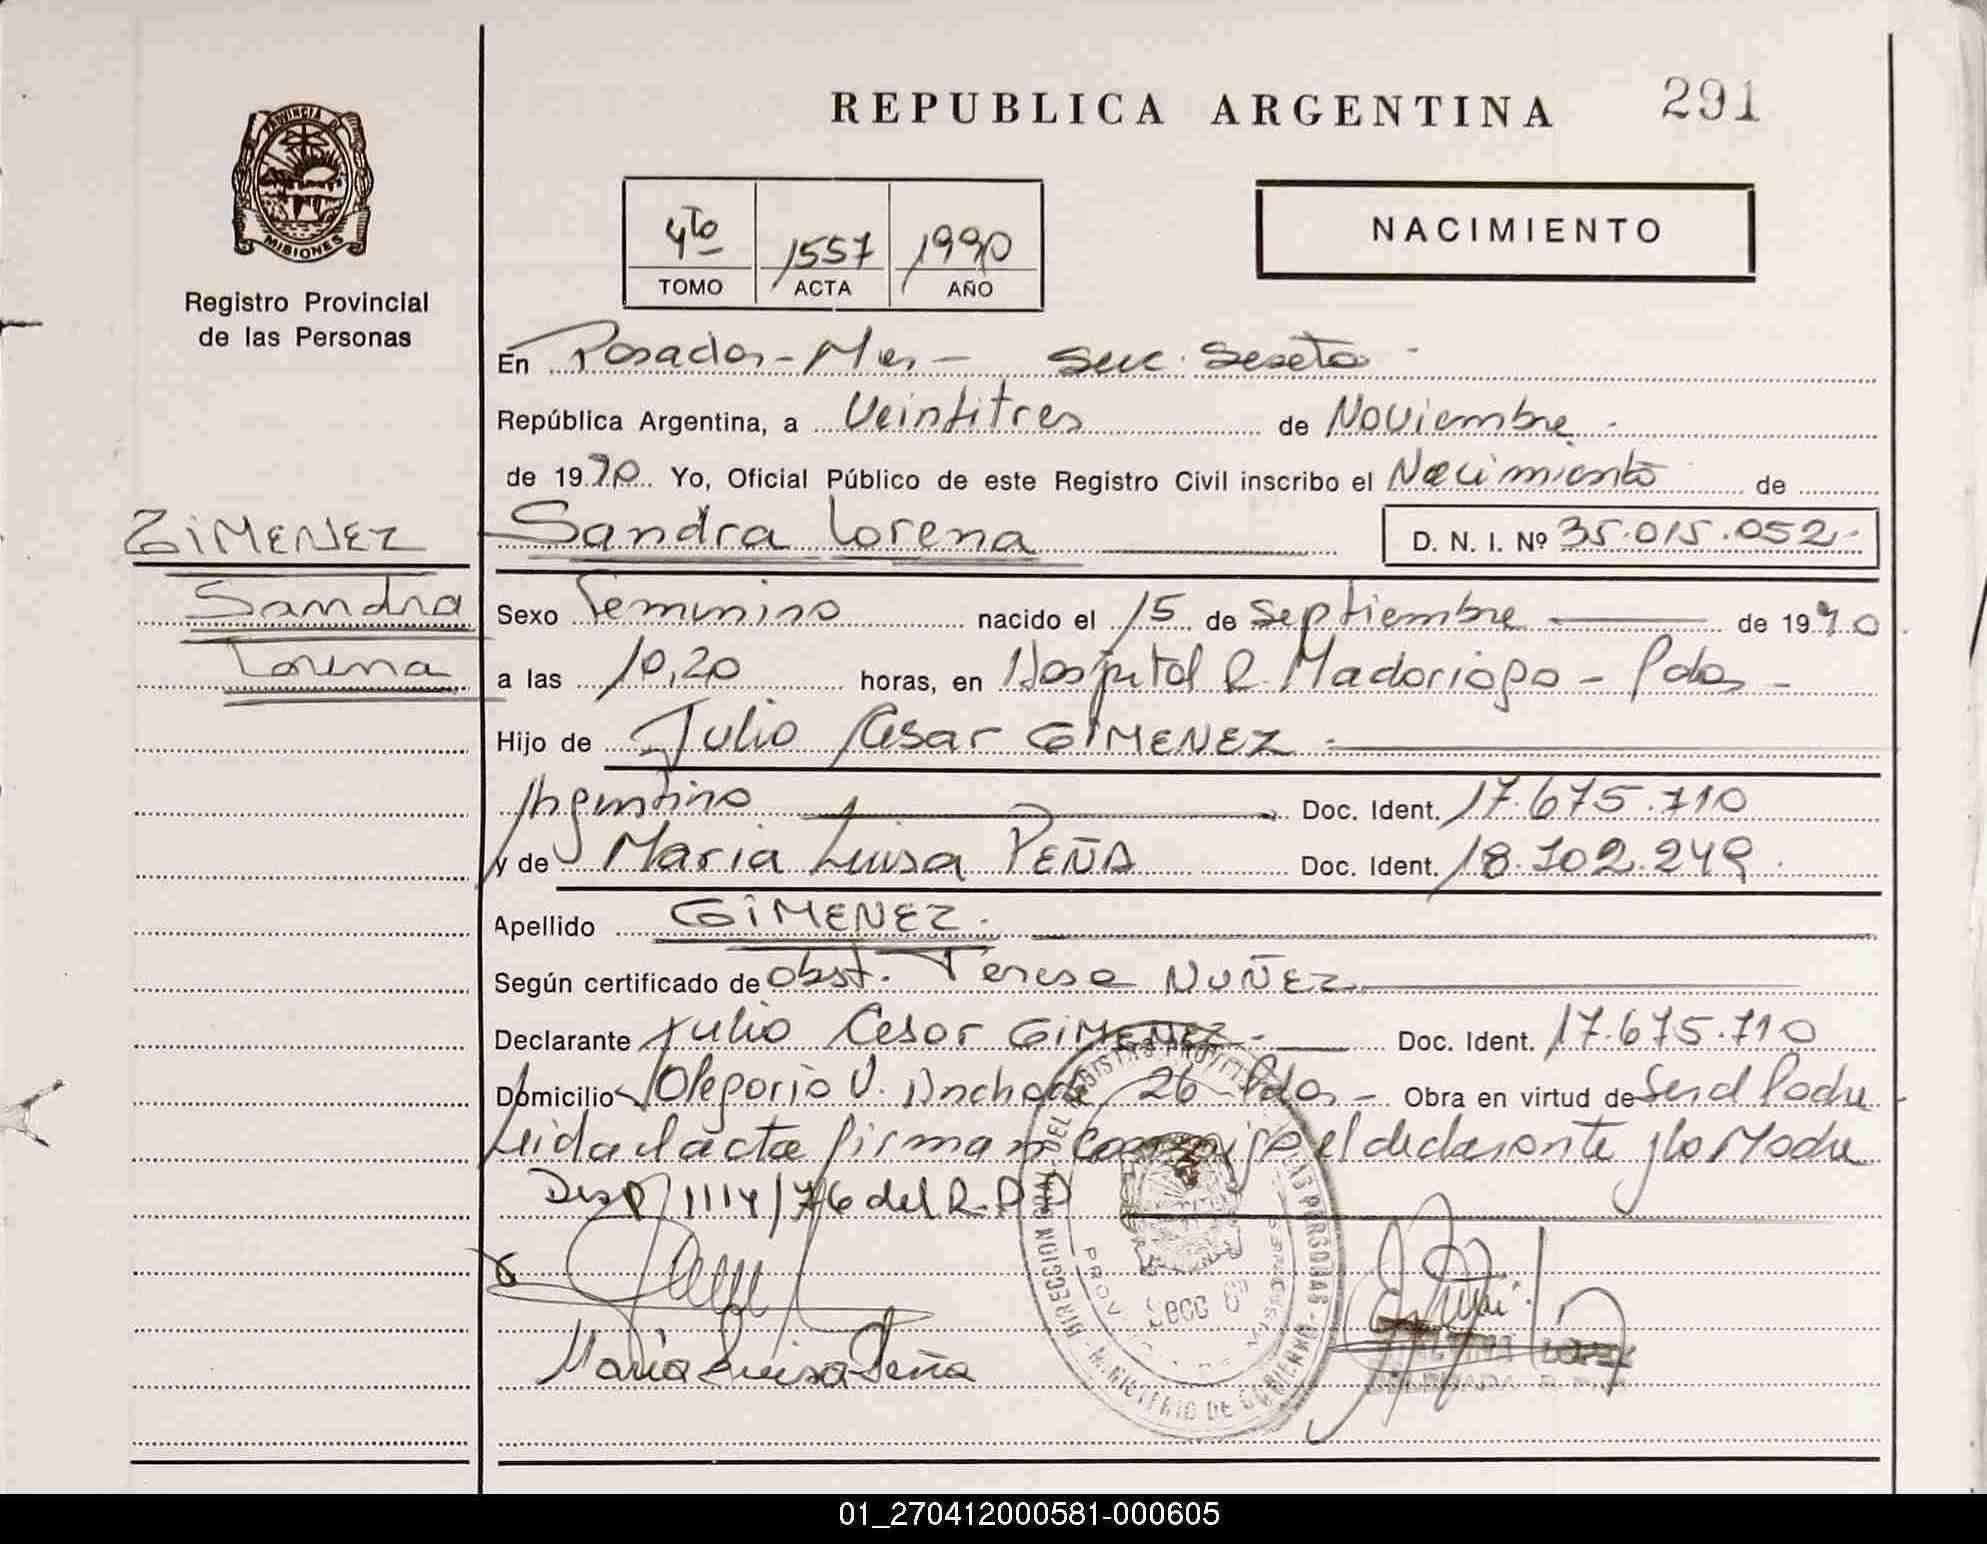 REPUBLICA ARGENTINA
291
PROVINCIA DE
MISIONES
Registro Provincial
de las Personas
NACIMIENTO
4to 1557 1990
TOMO ACTA AÑO
En Posadas - Mnes - Secc. Sexta
República Argentina, a Veintitres de Noviembre
de 1990 Yo, Oficial Público de este Registro Civil inscribo el Nacimiento de
Sandra Lorena D. N. I. Nº 35.015.052
GIMENEZ
Sandra
Lorena
Sexo Femenino nacido el 15 de Septiembre de 1990
a las 10,20 horas, en Hospital R. Madariaga - Pdas -
Hijo de Julio Cesar GIMENEZ
Argentino Doc. Ident. 17.675.710
y de Maria Luisa PEÑA Doc. Ident. 18.102.249
Apellido GIMENEZ.
Según certificado de Obst. Teresa NUÑEZ
Declarante Julio Cesar GIMENEZ - Doc. Ident. 17.675.710
Domicilio Olegario V. Andrade 26 Pdas - Obra en virtud de Ser el Padre
Leida el acta firman conmigo el declarante y la Madre
Disp 1114/76 del R.P.P
Maria Luisa Peña
DIRECCION GRAL. DEL REGISTRO PROVINCIAL DE LAS PERSONAS - MINISTERIO DE GOBIERNO
PROV. DE MISIONES
Secc 6ª
LOPEZ
01_270412000581-000605